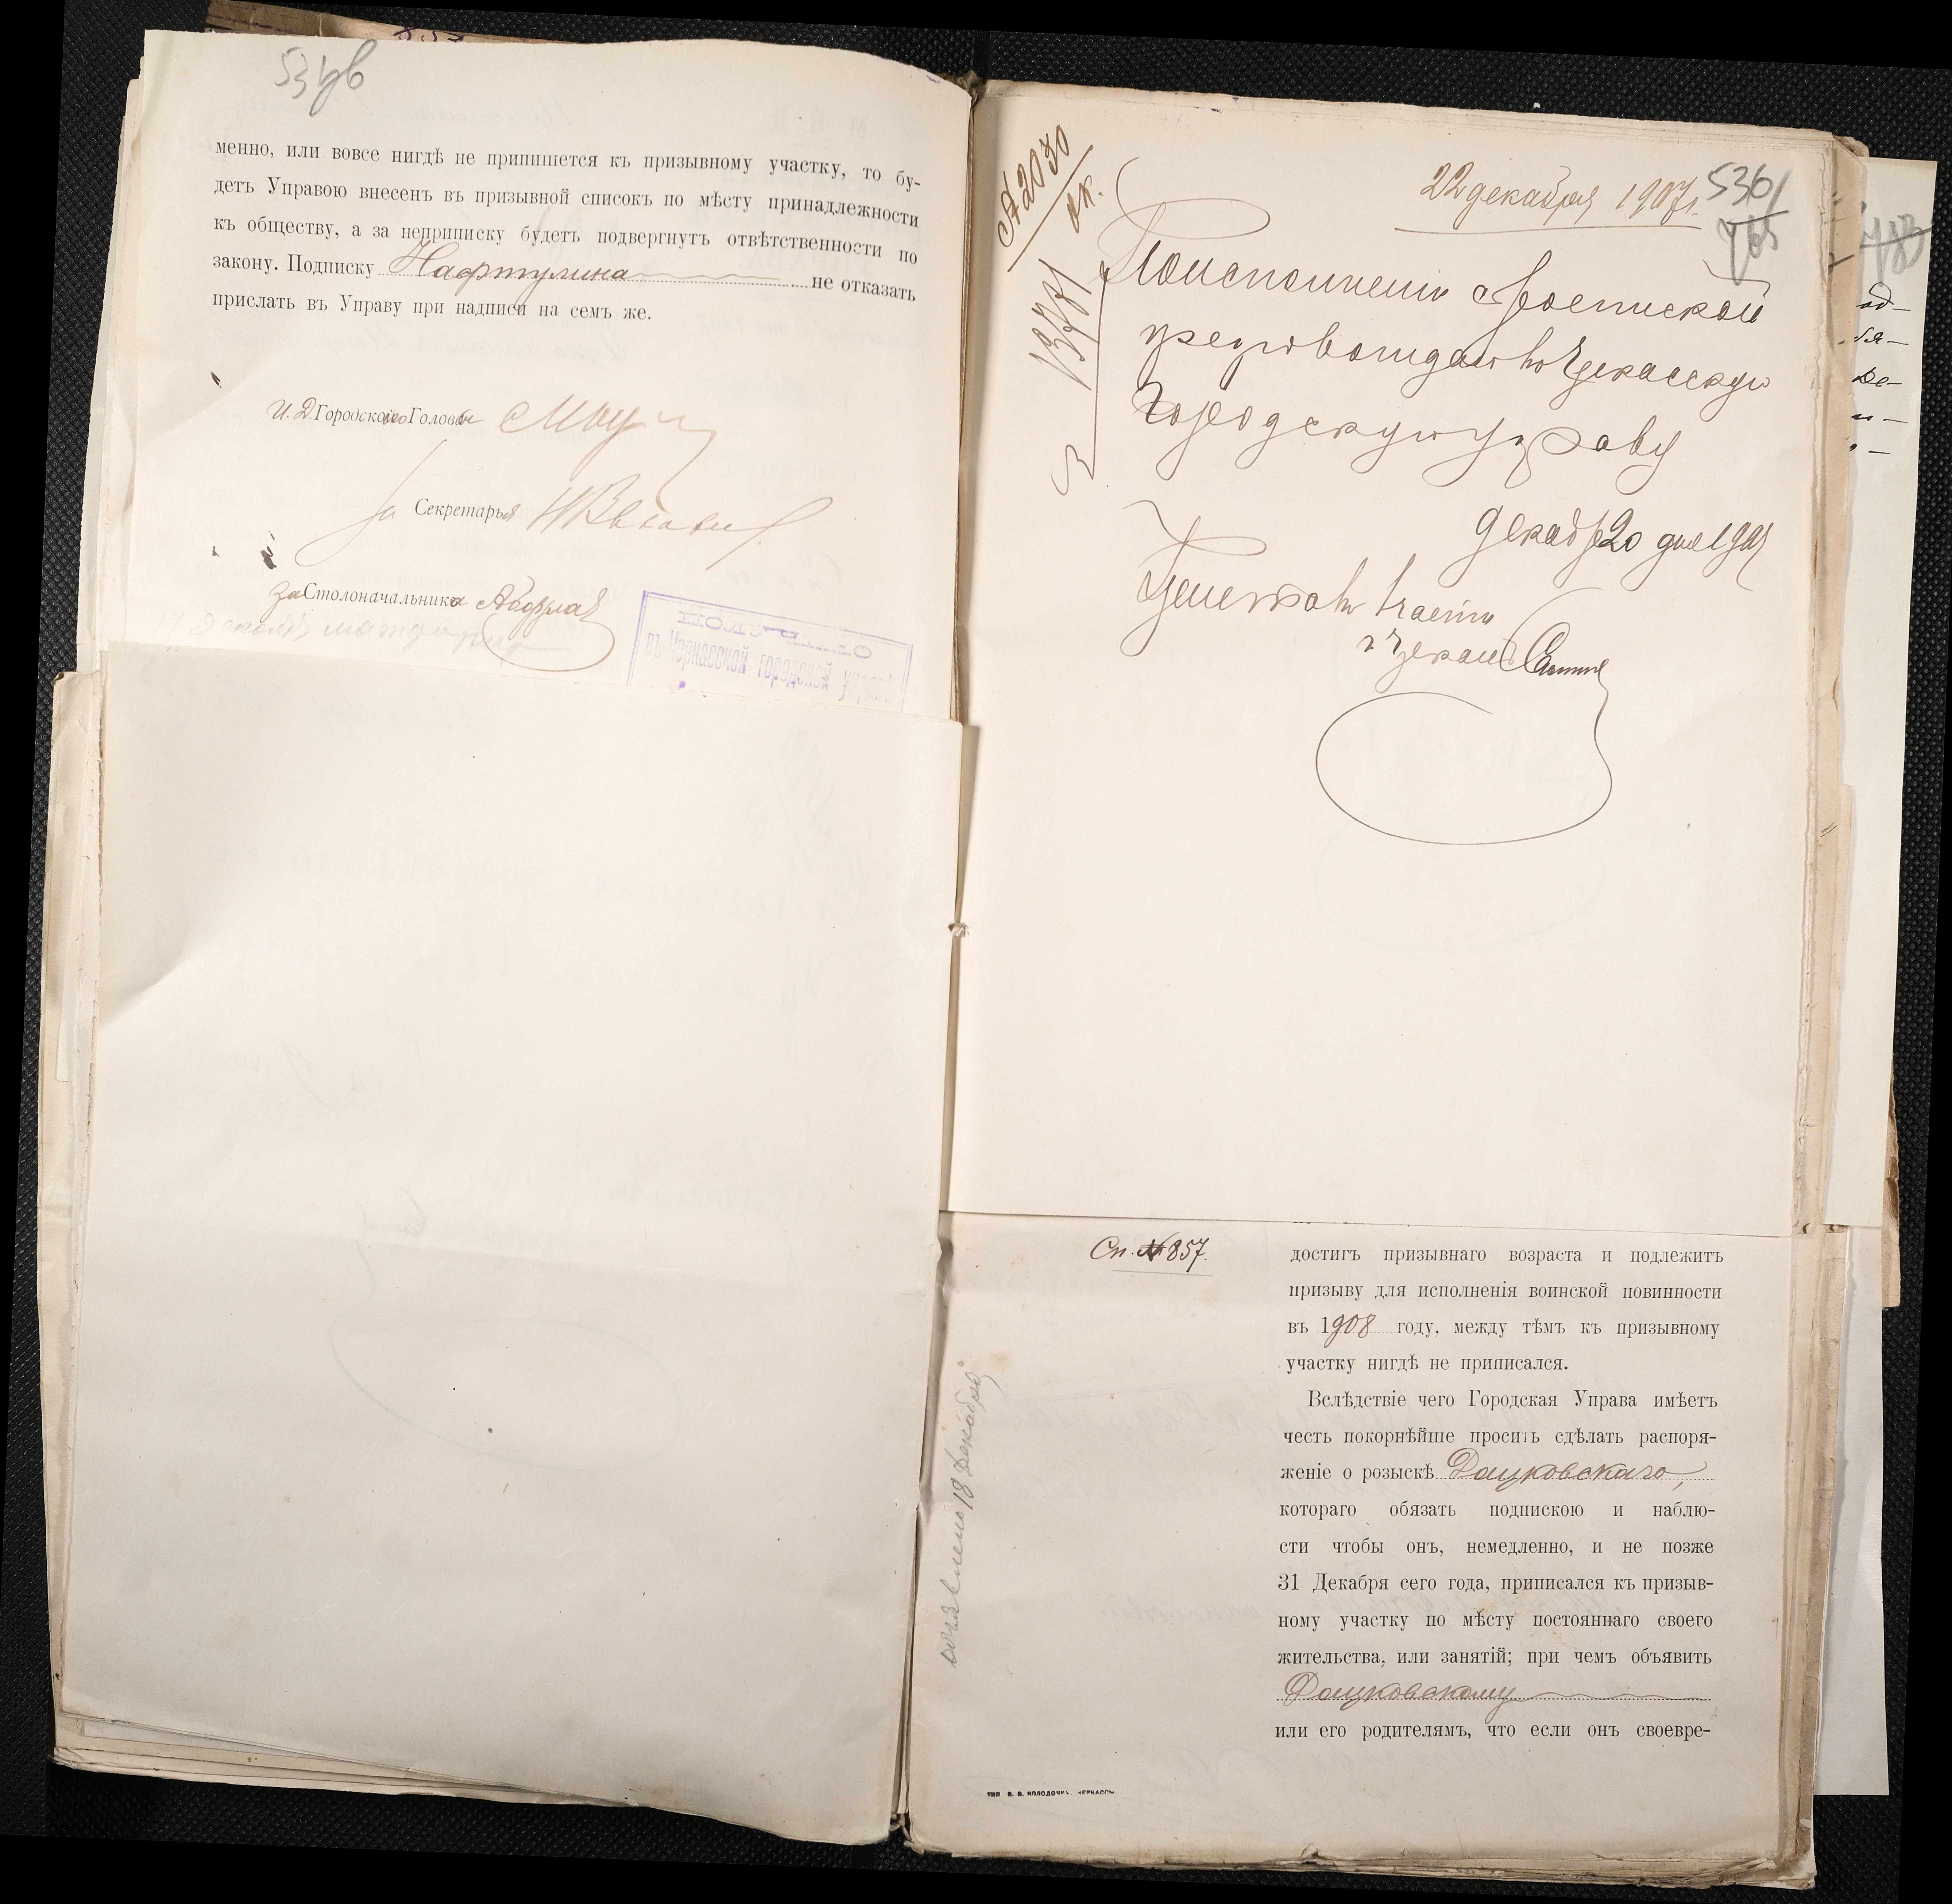 менно, или вовсе нигдѣ не припишется къ призывному участку, то бу-
детъ Управою внесенъ въ призывной списокъ по мѣсту принадлежности
къ обществу, а за неприписку будетъ подвергнутъ отвѣтственности по
закону. Подписку Нафтулина не отказать
прислать въ Управу при надписи на семъ же.
И. Д. Городского Головы
За Секретаря
За Столоначальника
въ Черкасской городской
22 декабря 1907 г.
536
№ 2030
По исполнении с роспиской
препровождаю въ Черкасскую
Городскую Управу
декабр 20 дня 1907
г Черкасс
Сп. № 857.
достигъ призывнаго возраста и подлежитъ
призыву для исполненія воинской повинности
въ 1908 году, между тѣмъ къ призывному
участку нигдѣ не приписался.
Вслѣдствіе чего Городская Управа имѣетъ
честь покорнѣйше просить сдѣлать распоря-
женіе о розыскѣ Дацковскаго,
котораго обязать подпискою и наблю-
сти чтобы онъ, немедленно, и не позже
31 Декабря сего года, приписался къ призыв-
ному участку по мѣсту постояннаго своего
жительства, или занятій; при чемъ объявить
Дацковскому
или его родителямъ, что если онъ своевре-
объявлено 18 декабря